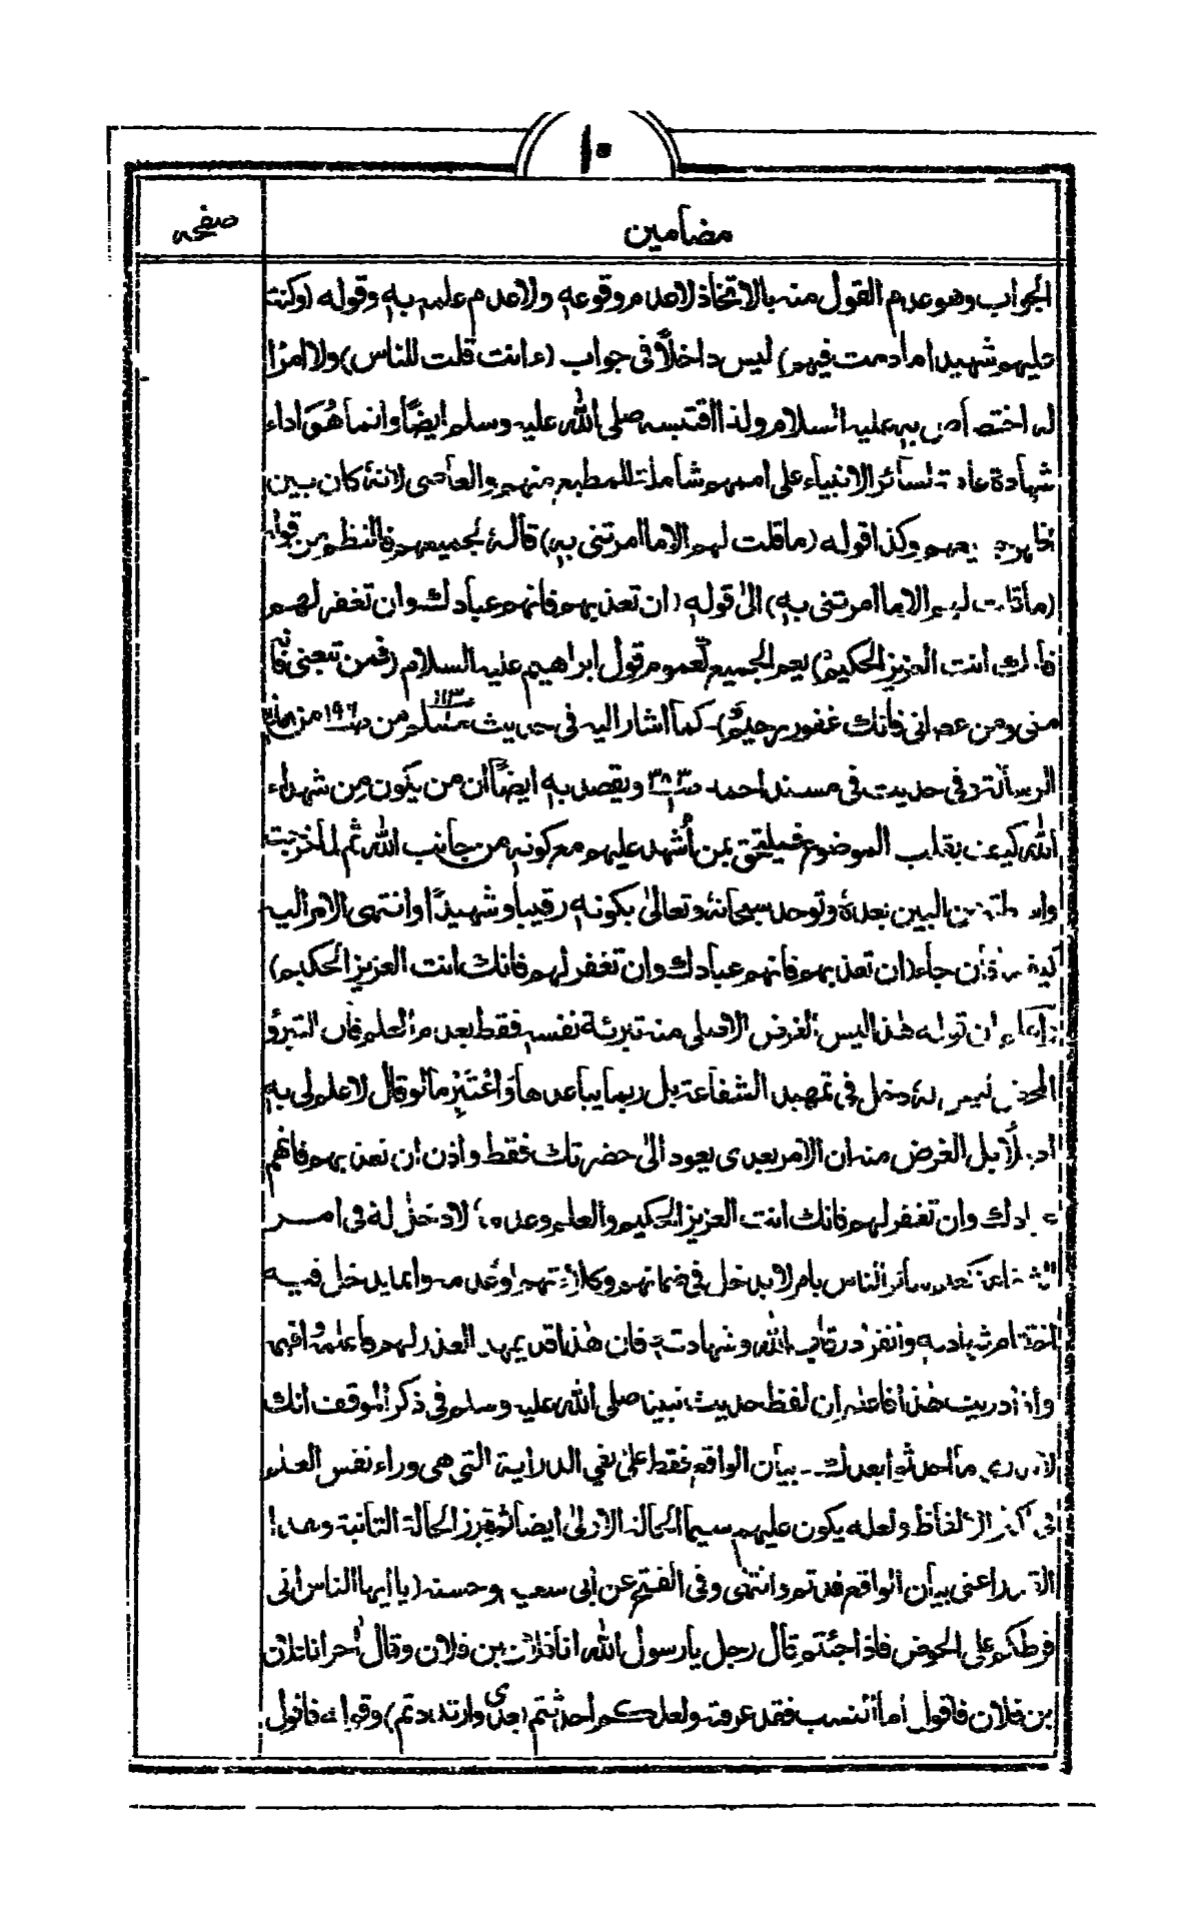 ١٠
مضامين
صفحه
الجواب وهو عدم القول منه بالاتخاذ لا عدم وقوعه ولا عدم علمه به وقوله (وكنت
عليهم شهيدا ما دمت فيهم) ليس داخلاً في جواب (ءانت قلت للناس) ولا امرًا
له اختصاص به عليه السلام ولذا اقتبسه صلى الله عليه وسلم ايضًا وانما هُوَ اداء
شهادة عامة لسائر الانبياء على اممهم شاملة للمطيع منهم والعاصى لانهٗ كان بين
وكذا قوله (ما قلت لهم الا ما امرتنى به) قالهٗ لجميعهم فالنظم من قوله
(ما قلت لهم الا ما امرتنى به) الىٰ قوله (ان تعذبهم فانهم عبادك وان تغفر لهم
فانك انت العزيز الحكيم) يعم الجميع لعموم قول ابراهيم عليه السلام (فمن تبعنى فانه
منى ومن عصانى فانك غفور رحيم) - كما اشار اليه في حديث مسلم ١١٣ من ص ١٩٦ من
في حديث في مسند احمد ويقصد به ايضًا ان من يكون من شهداء
الله كيف يقلب الموضوع فيلتحق بمن أُشهد عليهم مع كونه من جانب الله ثم لما خرجت
من البين بعدهٗ وتوحد سبحانهٗ وتعالىٰ بكونه رقيبا وشهيدًا وانتهى الامر اليه
جاء (ان تعذبهم فانهم عبادك وان تغفر لهم فانك انت العزيز الحكيم)
ان قوله هٰذا ليس الغرض الاصلى منه تبرئة نفسه فقط بعدم العلم فان التبرؤ
المحض ليس لهٗ دخل في تمهيد الشفاعة بل ربما يباعدها وَاعْتَبِرْ ما لو قال لا علم لى به
بل الغرض منه ان الامر بعدى يعود الىٰ حضرتك فقط واذن ان تعذبهم فانهم
عبادك وان تغفر لهم فانك انت العزيز الحكيم والعلم وعدمهٗ لا دخل لهٗ في امـر
الشفاعة سائر الناس بامر لا يدخل في ضمانهم وعدمه وانما يدخل فيه
الله وشهادته فان هٰذا قد يمهد العذر لهم
واذا دريت هٰذا فاعلم ان لفظ حديث نبينا صلى الله عليه وسلم في ذكر الموقف انك
لا تدرى ما احدثوا بعدك - بيان الواقع فقط علىٰ نفي الدراية التى هى وراء نفس العلم
في اكثر الالفاظ ولعله يكون عليهم سيما الحالة الاولىٰ ايضا الحالة الثانية وبهذا
القدر اعنى بيان الواقع قد تم وانتهى وفى الفتح عن ابى سعيد وحسنه (يا ايها الناس انى
فرطكم على الحوض فاذا جئتم قال رجل يا رسول الله انا فلان بن فلان وقال اٰخر انا فلان
بن فلان فاقول اما النسب فقد عرفته ولعلكم احدثتم بعدى وارتددتم) وقوله فاقول